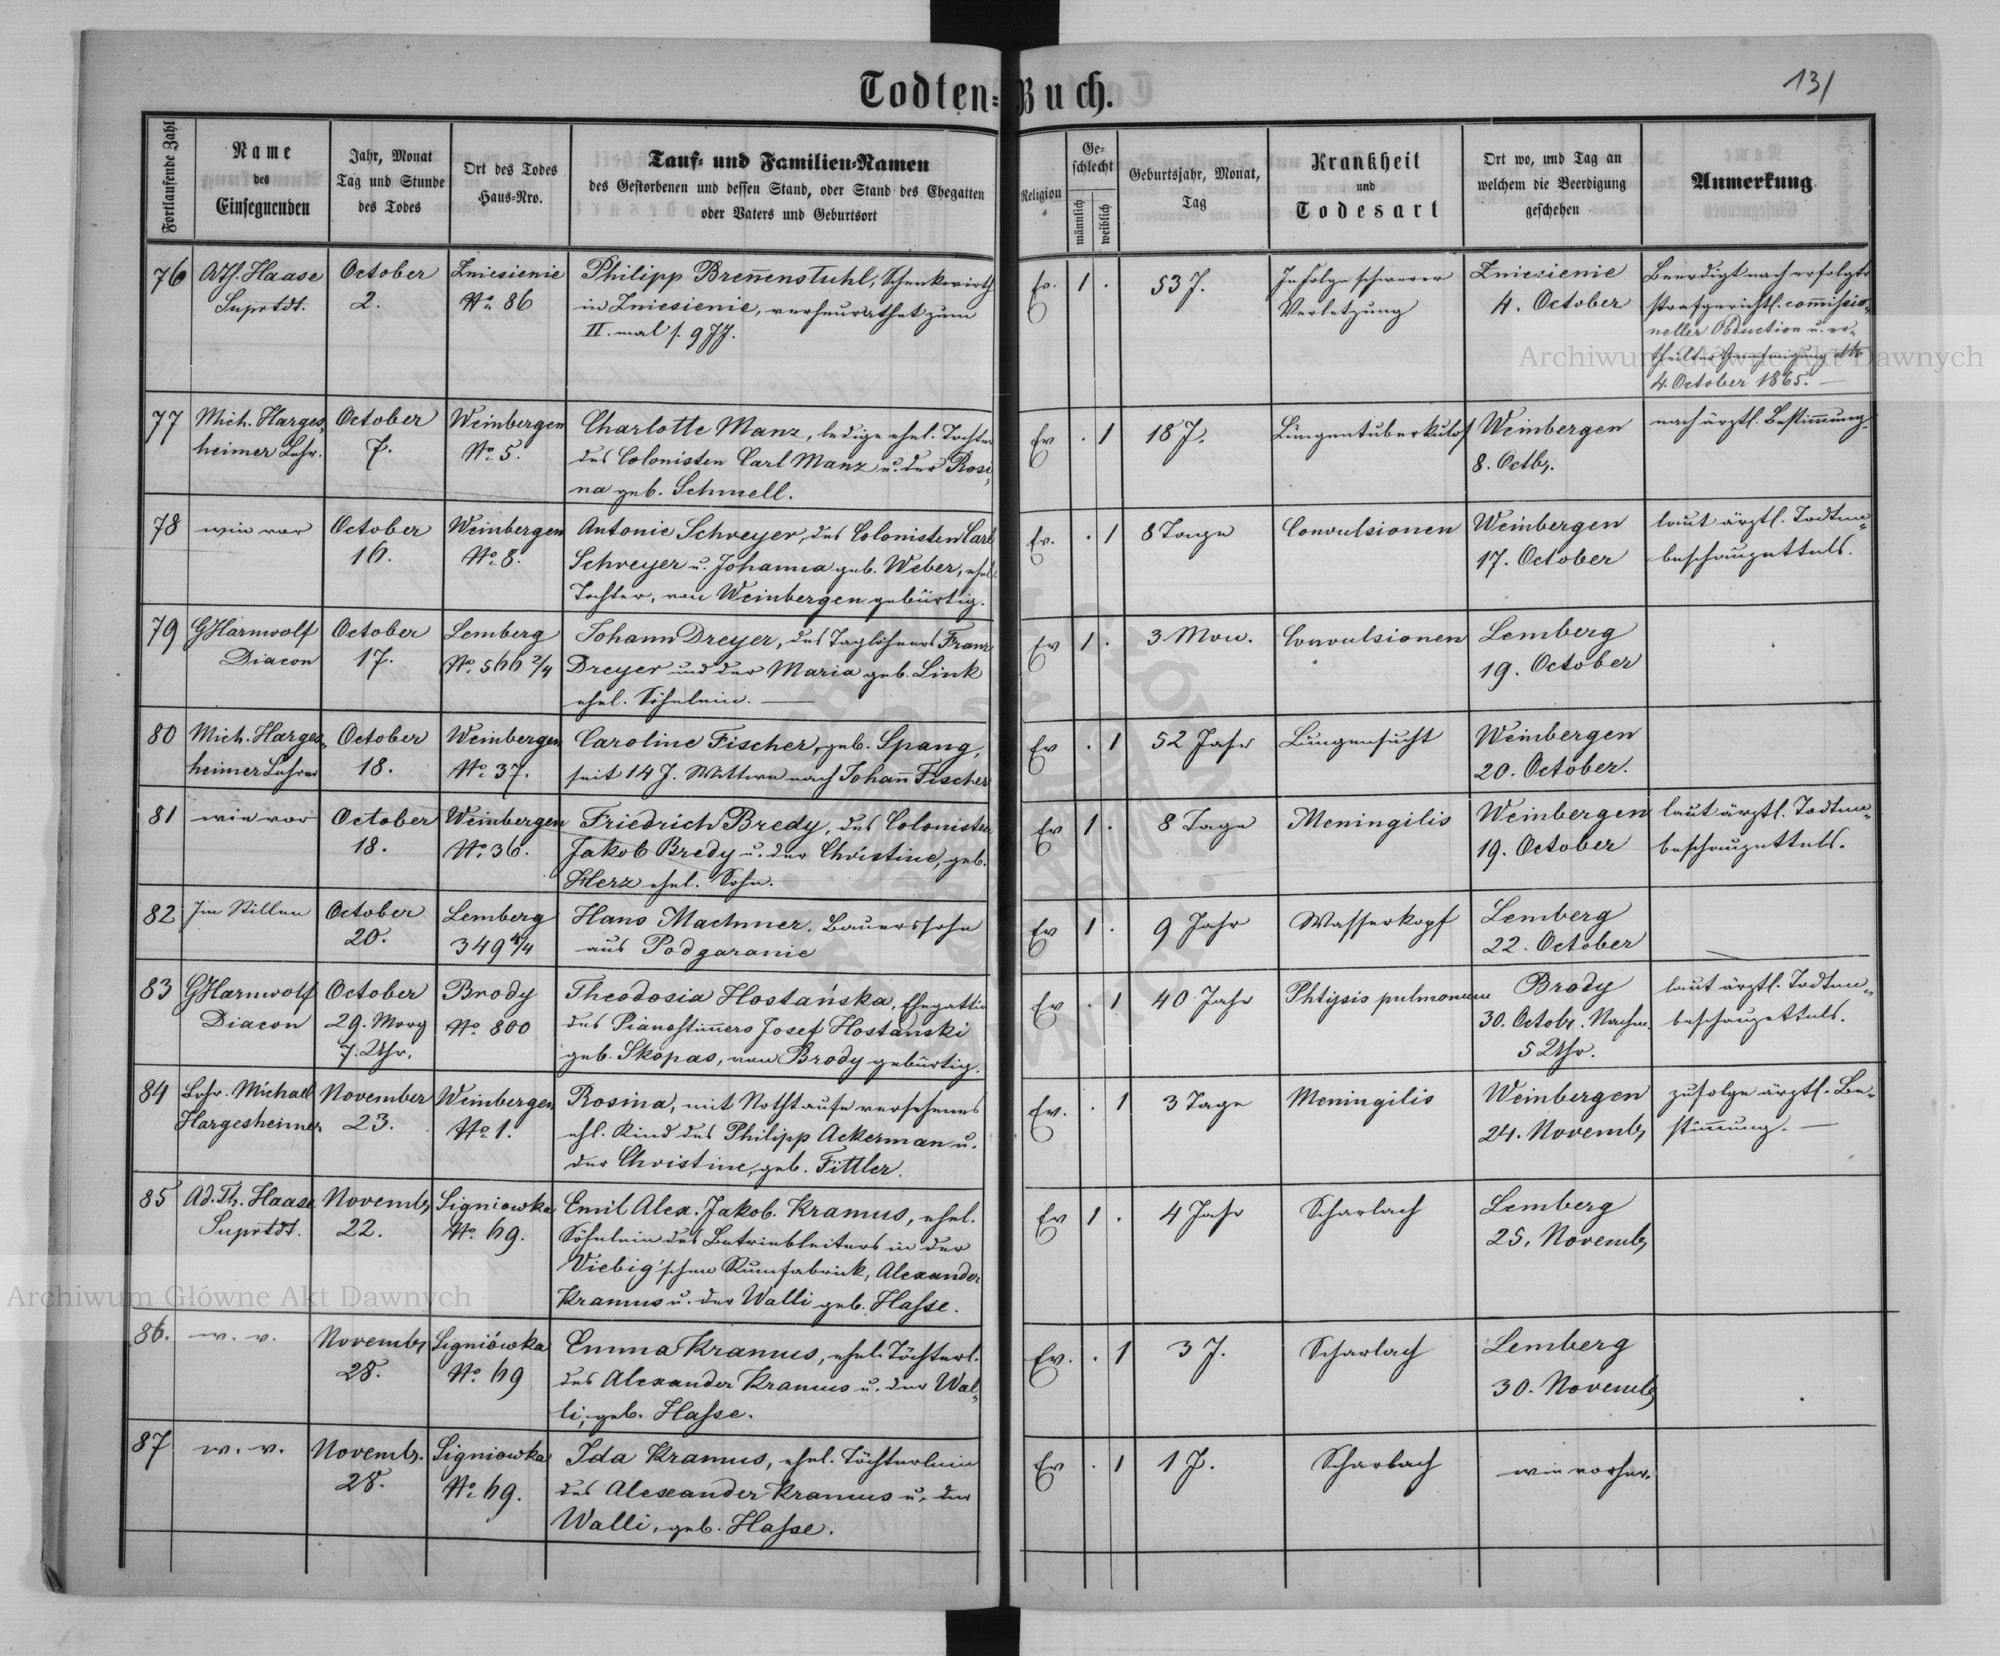 Todten-Buch.
131
Fortlaufende Zahl
Name
des
Einsegnenden
Jahr, Monat
Tag und Stunde
des Todes
Ort des Todes
Haus-Nro.
Tauf- und Familien-Namen
des Gestorbenen und dessen Stand, oder Stand des Ehegatten
oder Vaters und Geburtsort
Religion
Ge-
schlecht
männlich
weiblich
Geburtsjahr, Monat,
Tag
Krankheit
und
Todesart
Ort wo, und Tag an
welchem die Beerdigung
geschehen
Anmerkung
76
Haase
Suprtdt.
October
2.
Zniesienie
No. 86
Philipp Breñenstuhl, Schenkwirth
in Zniesienie, verheurathet zum
II. mal s. 9 JJ.
Ev.
1 .
53 J.
In Folge schwerer
Verletzung
Zniesienie
4. October
Beerdigt nach erfolgter
strafgerichtl. com̃issio-
neller Obduction u. er-
theilter Genehmigung dtto
4 October 1865. —
77
Mich. Harges-
heimer Lehr.
October
7.
Weinbergen
No. 5.
Charlotte Manz, ledige ehel. Tochter
des Colonisten Carl Manz u. der Rosi-
na geb. Schmell.
Ev
. 1
18 J.
Lungentuberkulos
Weinbergen
8. Octbr.
nach ärztl. Bestim̃ung.
78
wie vor
October
16.
Weinbergen
No. 8.
Antonie Schreyer, des Colonisten Carl
Schreyer u. Johanna geb. Weber, ehel.
Tochter, von Weinbergen gebürtig.
Ev.
. 1
8 Tage
Convulsionen
Weinbergen
17. October
laut ärztl. Todten-
beschauzettels.
79
GHarnwolf
Diacon
October
17.
Lemberg
No. 566 2/4
Johann Dreyer, des Taglöhners Franz
Dreyer und der Maria geb. Link
ehel. Söhnlein. —
Ev
1 .
3 Mon.
Convulsionen
Lemberg
19. October
80
Mich. Harges-
heimer Lehrer
October
18.
Weinbergen
No. 37.
Caroline Fischer, geb. Spang,
seit 14 J. Wittwe nach Johañ Fischer
Ev
. 1
52 Jahr
Lungensucht
Weinbergen
20. October.
81
wie vor
October
18.
Weinbergen
No. 36.
Friedrich Bredy, des Colonisten
Jakob Bredy u. der Christine, geb.
Herz ehel. Sohn.
Ev
1 .
8 Tage
Meningilis
Weinbergen
19. October
laut ärztl. Todten-
beschauzettels.
82
Im Stillen
October
20.
Lemberg
349 4/4
Hans Machmer, Bauerssohn
aus Podgaranie
Ev
1 .
9 Jahr
Wasserkopf
Lemberg
22. October
83
GHarnwolf
Diacon
October
29. Morg
7. Uhr.
Brody
No. 800
Theodosia Hostańska, Ehegattin
des Pianostim̃ers Josef Hostański
geb. Skopas, von Brody gebürtig.
Ev
. 1
40 Jahr
Phtysis pulmonum
Brody
30. Octobr. Nachm.
5 Uhr.
laut ärztl. Todten-
beschauzettels.
84
Lehr. Michael
Hargesheimer
November
23.
Weinbergen
No. 1.
Rosina, mit Nothtaufe versehenes
ehl. Kind des Philipp Ackerman u.
der Christine, geb. Fittler.
Ev.
. 1
3 Tage
Meningilis
Weinbergen
24. Novemb.
zufolge ärztl. Be-
stim̃ung. —
85
Ad. Th. Haase
Suprtdt.
Novemb.
22.
Signiowka
No. 69.
Emil Alex. Jakob. Kramus, ehel.
Söhnlein des Betriebleiters in der
Viebig'schen Rumfabrick, Alexander
Kramus u. der Walli geb. Hasse.
Ev
1 .
4 Jahr
Scharlach
Lemberg
25. Novemb.
86.
w. v.
Novemb.
28.
Signiówka
No. 69
Emma Kramus, ehel. Töchterl.
des Alexander Kramus u. der Wal-
li, geb. Hasse.
Ev.
. 1
3 J.
Scharlach
Lemberg
30. Novemb.
87
w. v.
Novemb.
28.
Signiowka
No. 69.
Ida Kramus, ehel. Töchterlein
des Alexander Kramus u. der
Walli, geb. Hasse.
Ev
. 1
1 J.
Scharlach
wie vorher.
Archiwum Główne Akt Dawnych
Archiwum Główne Akt Dawnych